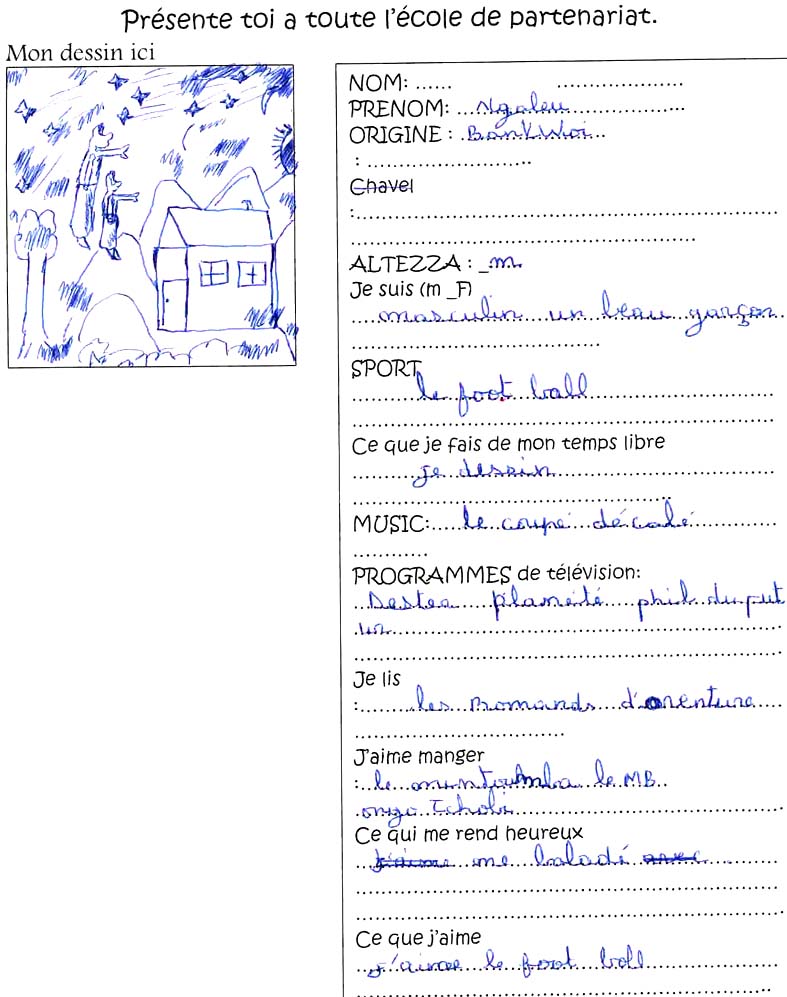 Présente toi a toute l'école de partenariat.
Mon dessin ici
NOM: ...... ...................
PRENOM: ... Ngaleu ...................
ORIGINE : .BankWoi...
: .........................
Chavel
:................................................................
....................................................
ALTEZZA : _m.
Je suis (m _F)
....masculin...un beau garçon.
.....................................
SPORT
..........le foot ball............................
................................................................
Ce que je fais de mon temps libre
..........je dessin..................................
................................................
MUSIC:.....le coupé...décalé.............
...........
PROGRAMMES de télévision:
..Destea....planeité....phil.du.fut
.un.............................................................
................................................................
Je lis
:.........les Romands...d'aventure....
................................
J'aime manger
:..le...mintoumba le MB..
.ongo Tchobi........................................
Ce qui me rend heureux
...j'aime me baladé avec..........
................................................................
................................................................
Ce que j'aime
..j'aime le foot boll....................
................................................................